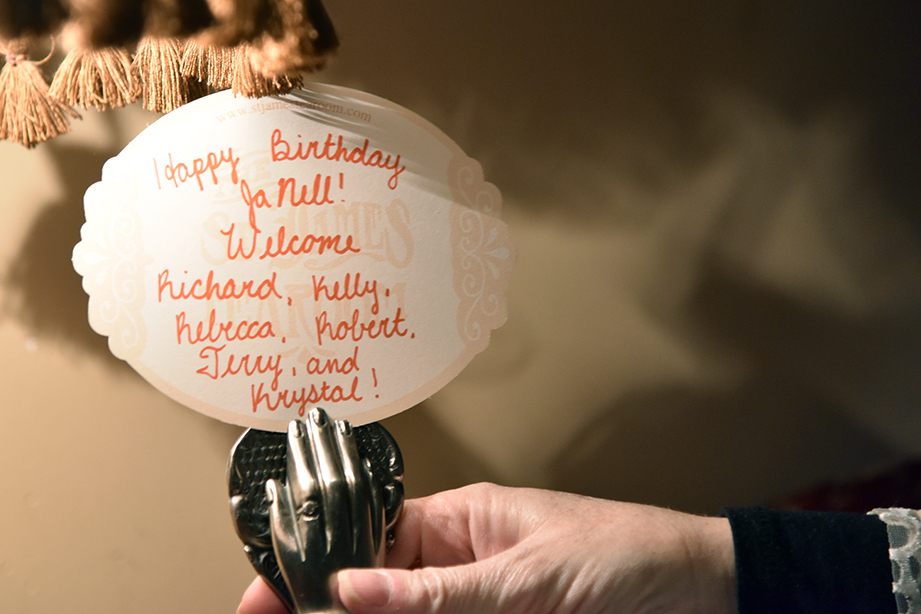 www.stjamestearoom.com
Happy Birthday
JaNell!
Welcome
Richard, Kelly,
Rebecca, Robert,
Terry, and
Krystal!
ST. JAMES